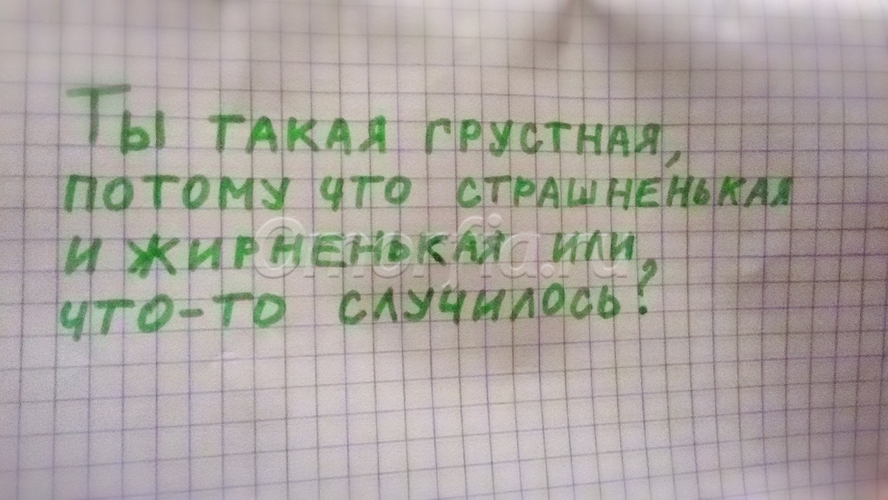 Ты такая грустная,
потому что страшненькая
и жирненькая или
что-то случилось?
©morfia.ru